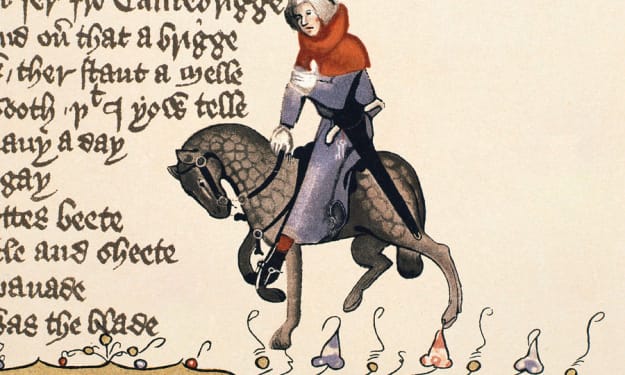 fer fro Cantebrigge
that a brigge
ther stant a Melle
sooth þt I yow telle
any a day
gay
ttes beete
tle and sheete
panade
as the blade